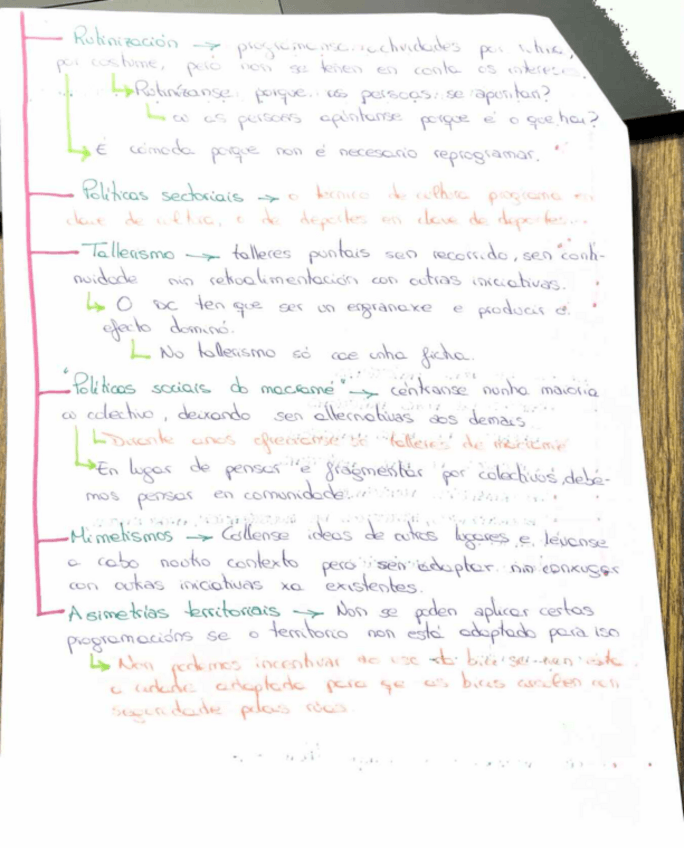 Rutinización → prográmanse actividades por inercia,
por costume, pero non se teñen en conta os intereses.
↳ Rutinízanse porque as persoas se apuntan?
↳ ou as persoas apúntanse porque é o que hai?
↳ É cómodo porque non é necesario reprogramar.
Políticas sectoriais → o técnico de cultura programa en
clave de cultura, o de deportes en clave de deportes...
Tallerismo → talleres puntais sen recorrido, sen conti-
nuidade nin retroalimentación con outras iniciativas.
↳ O DC ten que ser un engranaxe e producir o
efecto dominó.
↳ No tallerismo só cae unha ficha.
"Políticas sociais do macramé" → céntranse nunha maioría
ou colectivo, deixando sen alternativas aos demais
↳ Durante anos ofrecíanse talleres de macramé
↳ En lugar de pensar e fragmentar por colectivos, debe-
mos pensar en comunidade.
Mimetismos → Cóllense ideas de outros lugares e lévanse
a cabo noutro contexto pero sen adaptar nin conxugar
con outras iniciativas xa existentes.
Asimetrías territoriais → Non se poden aplicar certas
programacións se o territorio non está adaptado para iso
↳ Non podemos incentivar ao uso da bici se non está
a cidade adaptada para que as bicis circulen con
seguridade polas rúas.